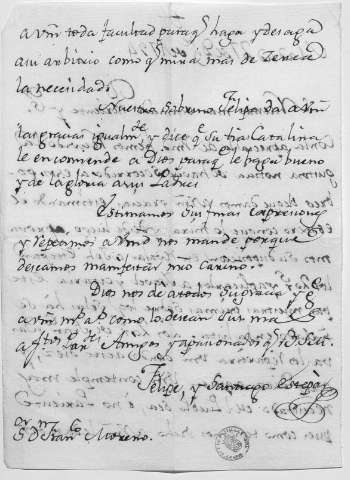 a Vm toda facultad para q haga y desaga
a su arbitrio como q mira mas de cerca
la necesidad.
Nuestro sobrino Felipe da a Vm
las gracias igualm.te y dice q su tia Catalina
le encomiende a Dios para q le haga bueno
y de la gloria a sus Padres
Estimamos sus mas expresiones
y repetamos a Vmd nos mande porque
deseamos manifestar nro cariño.
Dios nos de a todos su gracia y g.e
a Vm m.s a.s como lo desean sus mas
af.tos Amigos y apasionados q
Felipe, y Santiago
S.r D.n Fran.co Moreno.